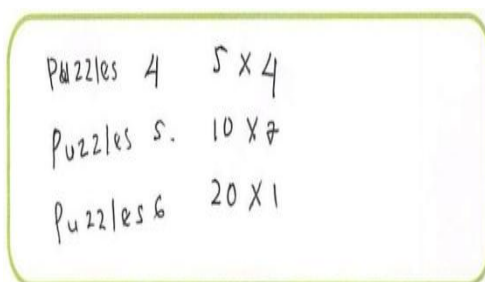 Puzzles 4 5 X 4
Puzzles 5. 10 X 7
Puzzles 6 20 X 1